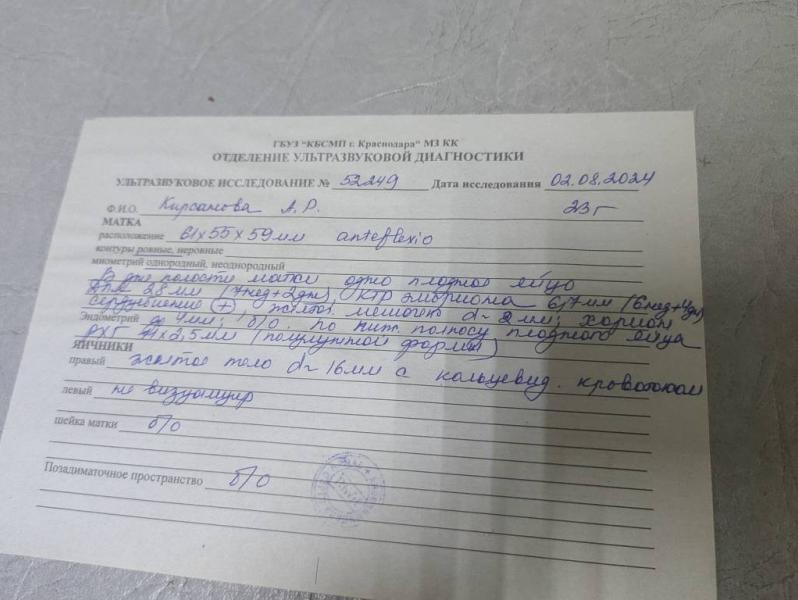 ГБУЗ "КБСМП г. Краснодара" МЗ КК
ОТДЕЛЕНИЕ УЛЬТРАЗВУКОВОЙ ДИАГНОСТИКИ
УЛЬТРАЗВУКОВОЕ ИССЛЕДОВАНИЕ № 52249 Дата исследования 02.08.2024
Ф.И.О. Кирсанова А.Р. 23 г
МАТКА
расположение 61х55х59мм anteflexio
контуры ровные, неровные
миометрий однородный, неоднородный
В дне полости матки одно плодное яйцо
28 мм (7нед+2дн), КТР эмбриона 6,7мм (6нед+4дн)
сердцебиение (+), желт. мешочек d~ 2 мм; хорион
Эндометрий до 4мм; б/о. По ниж. полюсу плодного яйца
х2,5мм (полулунной формы)
ЯИЧНИКИ
правый желтое тело d~ 16мм с кольцевид. кровотоком
левый не визуализир
шейка матки б/о
Позадиматочное пространство б/о